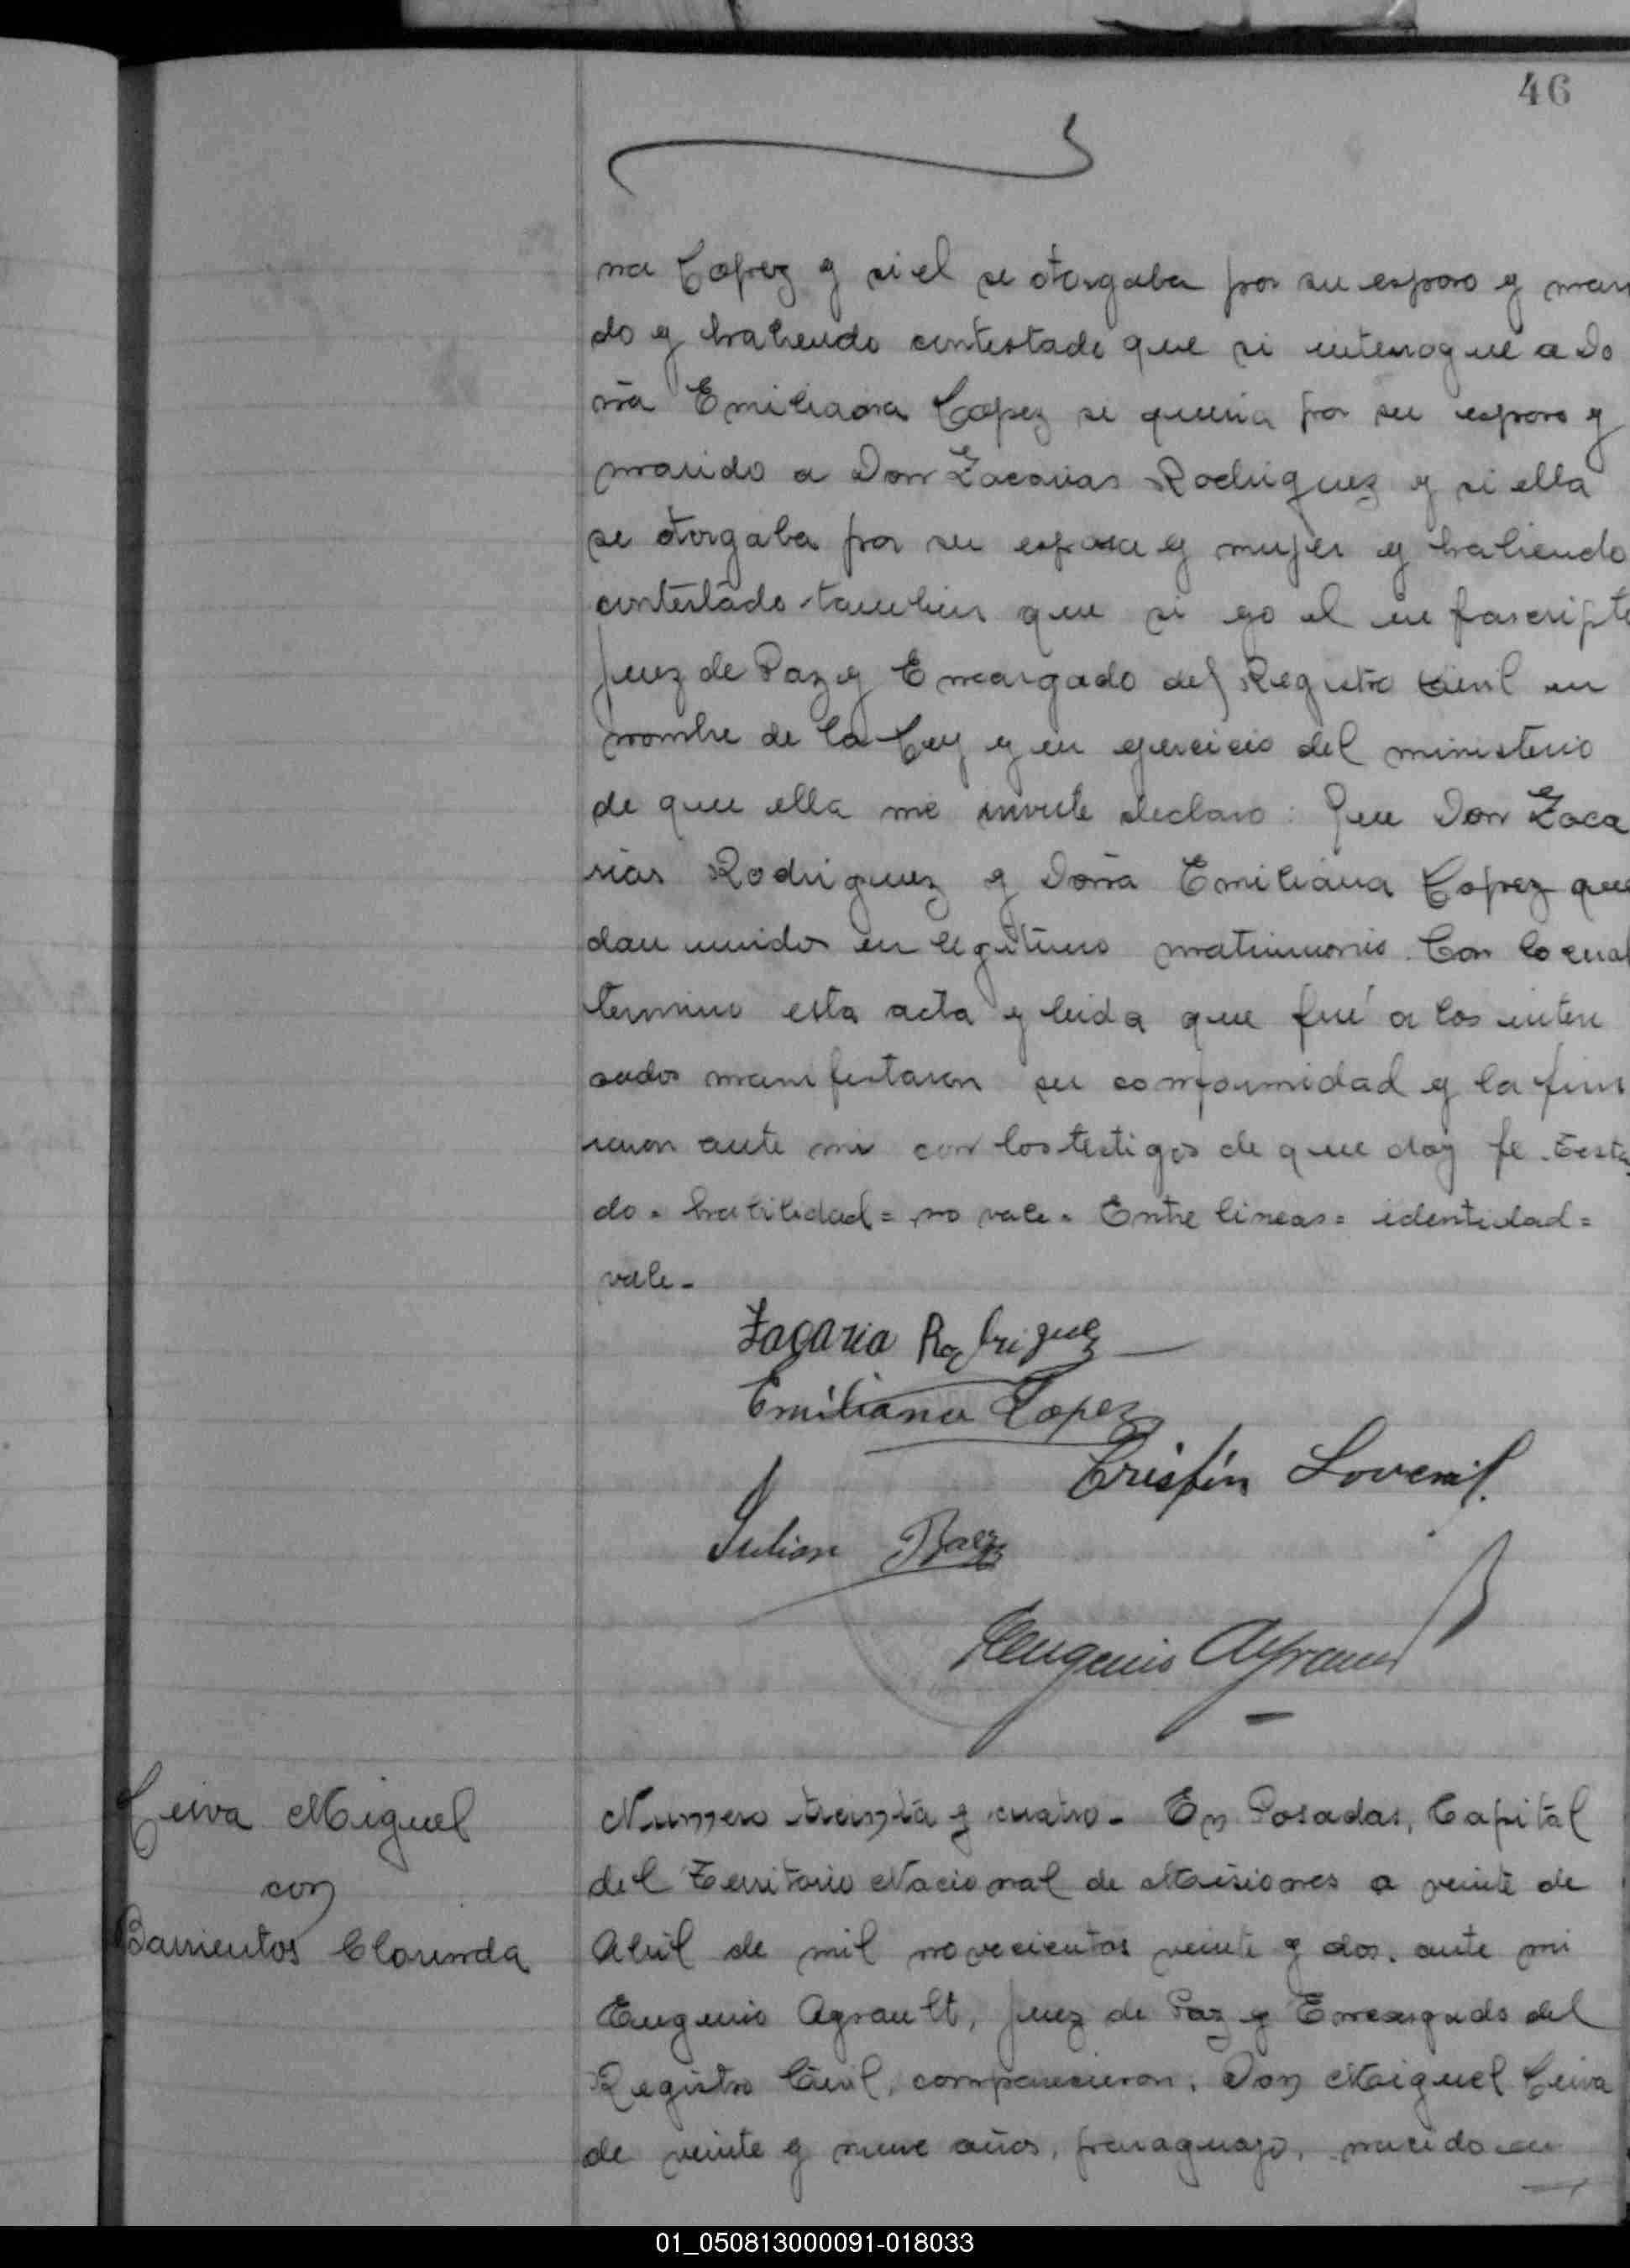 46
na Lopez y si el se otorgaba por su esposo y mari
do y habiendo contestado que si interrogue a Do
ña Emiliana Lopez si queria por su esposo y
marido a Don Zacarias Rodriguez y si ella
se otorgaba por su esposa y mujer y habiendo
contestado tambien que si yo el infrascripto
Juez de Paz y Encargado del Registro Civil en
nombre de la Ley y en ejercicio del ministerio
de que ella me inviste declaro: Que Don Zaca
rias Rodriguez y Doña Emiliana Lopez que
dan unidos en legitimo matrimonio. Con lo cual
termino esta acta y leida que fué a los intere
sados manifestaron su conformidad y la firm
aron ante mi con los testigos de que doy fe. Testa
do = habilidad = no vale = Entre lineas = identidad =
vale -
Zacaria Rodriguez
Emiliana Lopez
Crispín
Julian Baez
Eugenio Ayrault
Leiva Miguel
con
Barrientos Clorinda
Numero treinta y cuatro - En Posadas, Capital
del Territorio Nacional de Misiones a veinte de
Abril de mil novecientos veinte y dos. ante mi
Eugenio Ayrault, Juez de Paz y Encargado del
Registro Civil, comparecieron, Don Miguel Leiva
de veinte y nueve años, paraguayo, nacido en
01_050813000091-018033